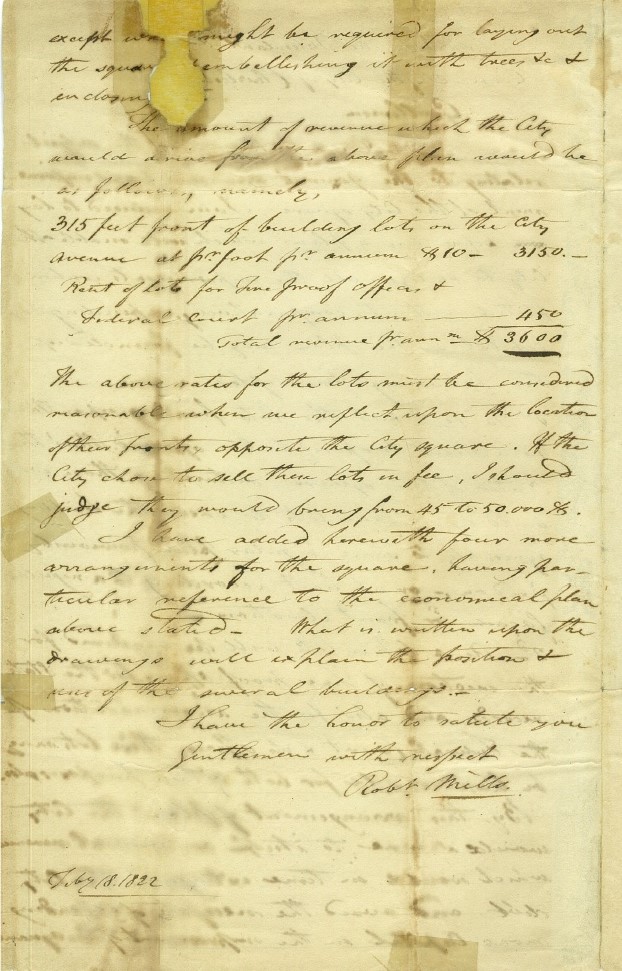 except might be required for laying out
the square embellishing it with trees &c &
The amount of revenue which the City
would arise from the above plan would be
as follows, namely,
315 feet front of building lots on the City
avenue at pr foot pr annum $10 – 3150.–
Rent of lots for Fire proof offices &
Federal Court pr. annum —— 450
Total revenue pr. annm $ 3600
The above rates for the lots must be considered
reasonable when we reflect upon the location
of their fronts, opposite the City square. If the
City chose to sell these lots in fee, I should
judge they would bring from 45 to 50.000 $s.
I have added herewith four more
arrangements for the square, having par-
ticular reference to the economical plan
above stated – What is written upon the
drawings will explain the position &
uses of the several buildings.–
I have the honor to salute you
Gentlemen with respect
Robt. Mills.
Feby 18. 1822